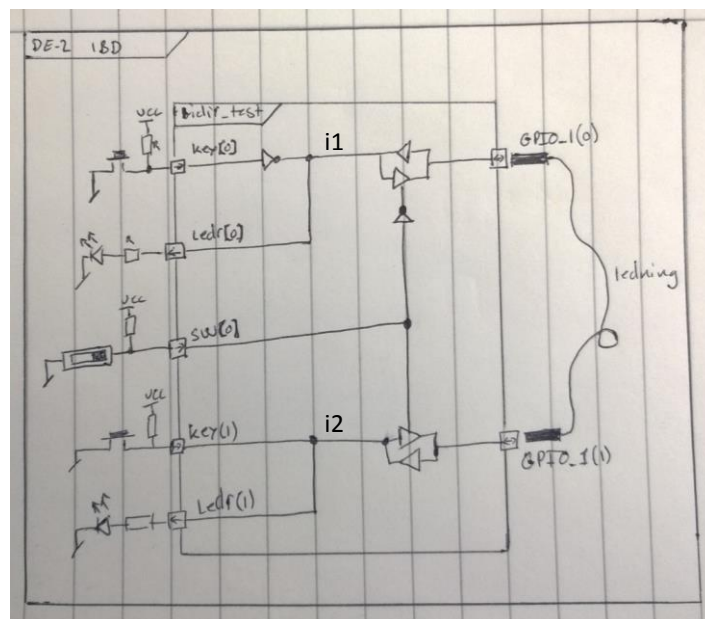 DE-2 IBD
bidir_test
VCC
key[0]
i1
GPIO_1(0)
ledr[0]
ledning
VCC
SW[0]
VCC
key(1)
i2
GPIO_1(1)
Ledr(1)